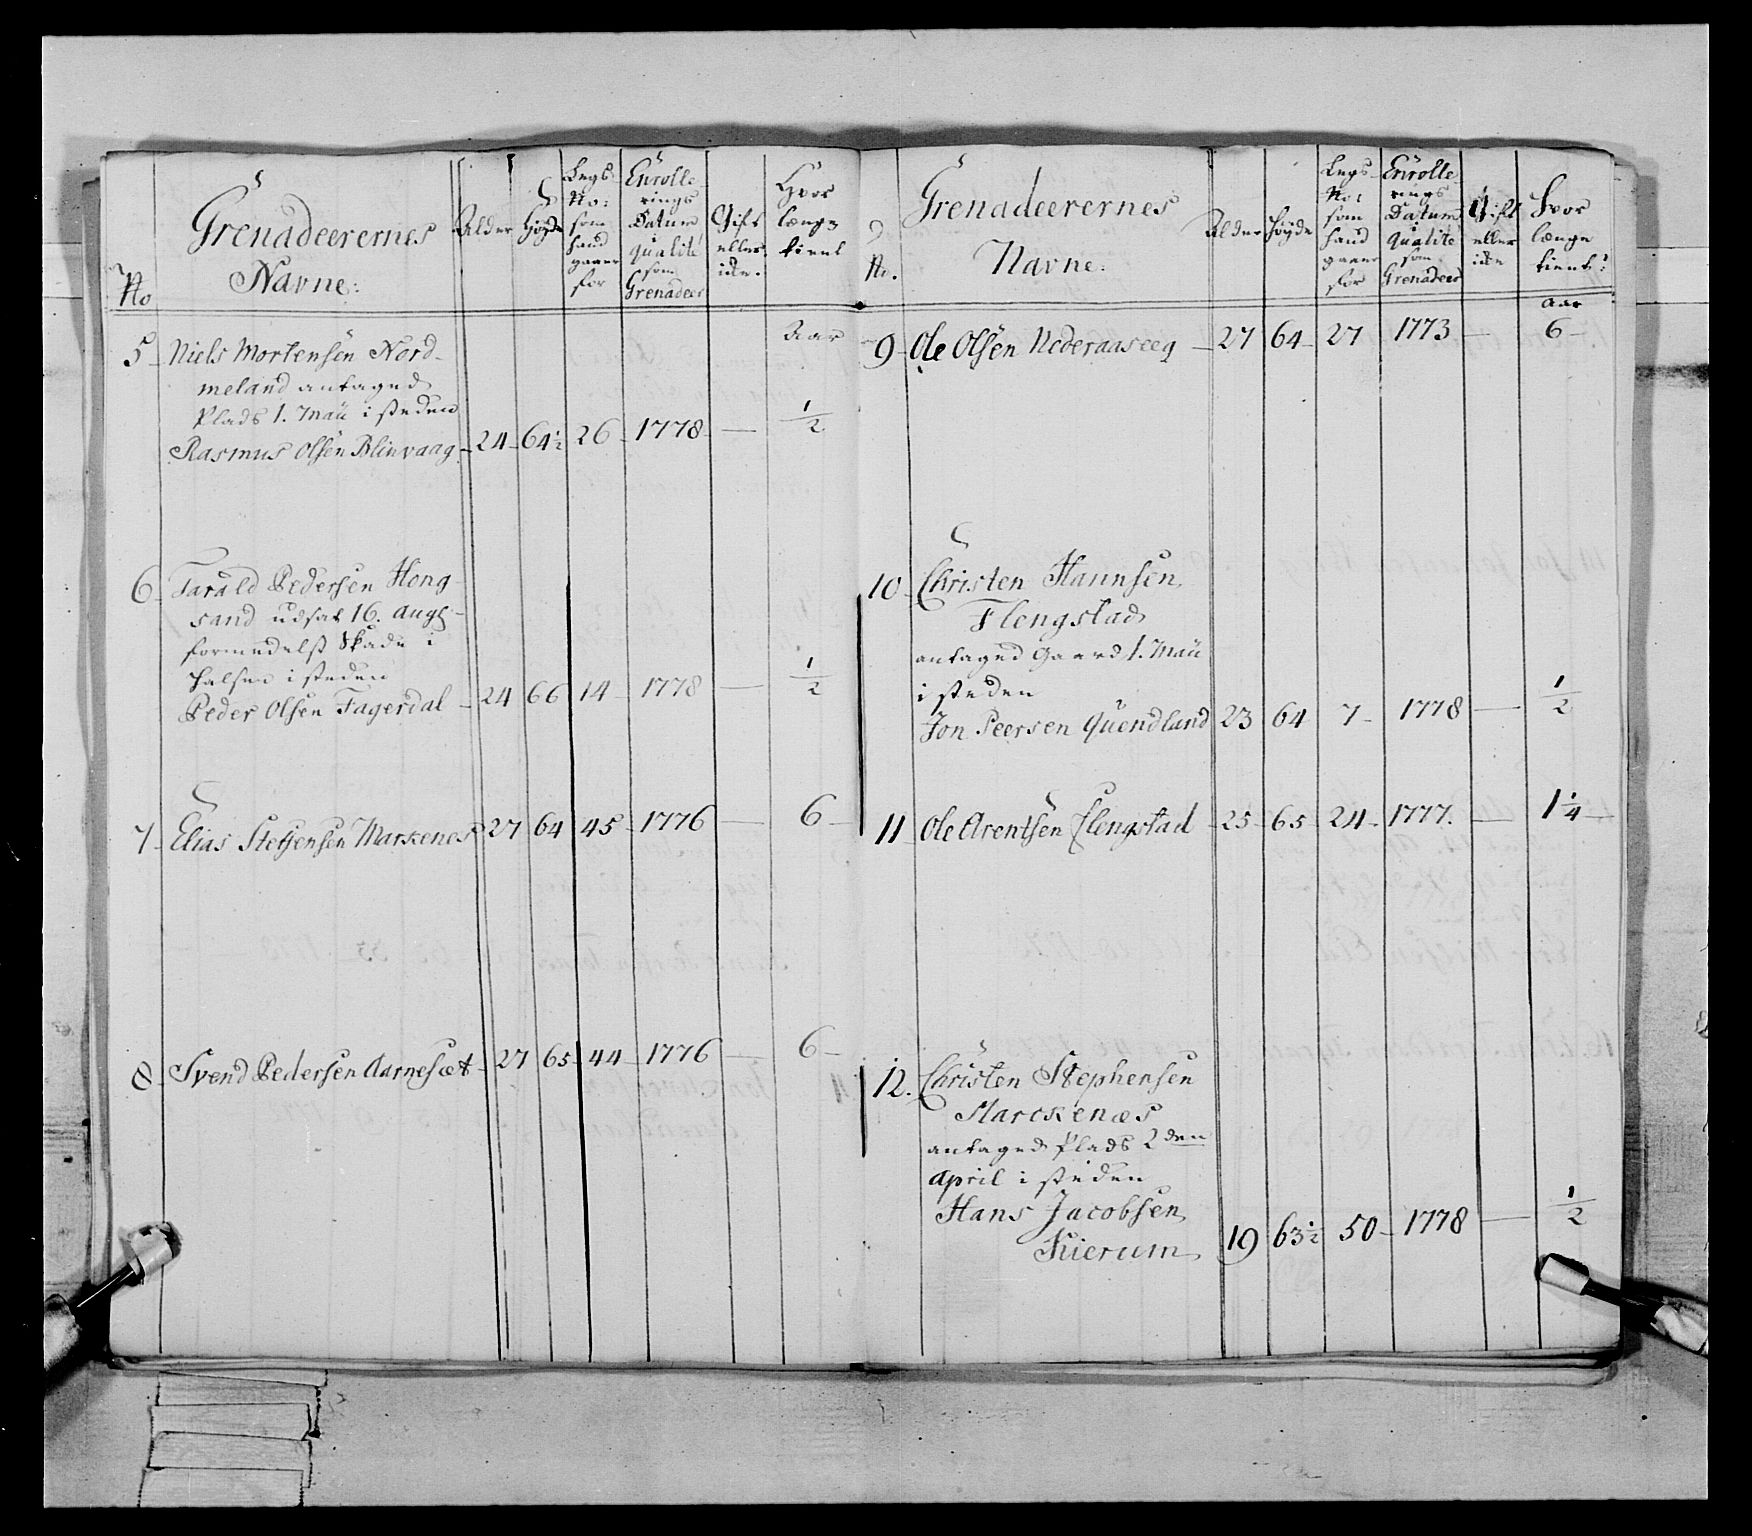 No
Grenadeerernes
Navne:
Alder
Høyde
Legs
No:
som
hand
gaaer
for
Enrolle
rings
Datum
i
qualité
som
Grenadeer
Gift
eller
icke.
Hvor
længe
tient
Aar
5 Niels Mortensen Nord-
meland antaged
Plads 1. Maii i steden
Rasmus Olsen Blinvaag 24 64½ 26 1778 — ½
6 Tarald Pedersen Hong
sand udsat 16. Augs:
formedelst Skade i
Halsen i steden
Peder Olsen Fagerdal 24 66 14 1778 — ½
7 Elias Steffensen Markenes 27 64 45 1776 — 6
8 Svend Pedersen Aarnesæt 27 65 44 1776 — 6
No.
Grenadeerernes
Navne:
Alder
Høyde
Legs
No:
som
hand
gaaer
for
Enrolle
rings
Datum
i
qualité
som
Grenadeer
Gift
eller
icke
Hvor
længe
tient:
Aar
9 Ole Olsen Nederaaseeg 27 64 27 1773 — 6
10 Christen Hannsen
Flengstad
antaged Gaard 1. Maii
i steden
Jon Peersen Quendland 23 64 7 1778 — ½
11 Ole Arentsen Flengstad 25 65 24 1777. — 1¼
12. Christen Stephensen
Marckenæs
antaged Plads 2den
April i steden
Hans Jacobsen
Kierum 19 63½ 50 1778 — ½